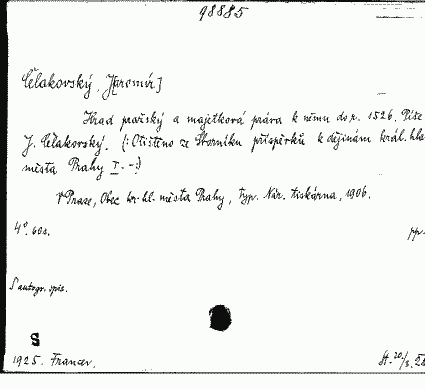 98885
Čelakovský, J[aromír]
Hrad pražský a majetková práva k němu do r. 1526. Píše
J. Čelakovský. (: Otištěno ze Sborníku příspěvků k dějinám král. hla
města Prahy I. -:)
V Praze, Obec kr. hl. města Prahy, typ. Nár. tiskárna, 1906.
4°. 60 s. pp.
S autogr. spis.
S
1925. Francev. St. 20/3.